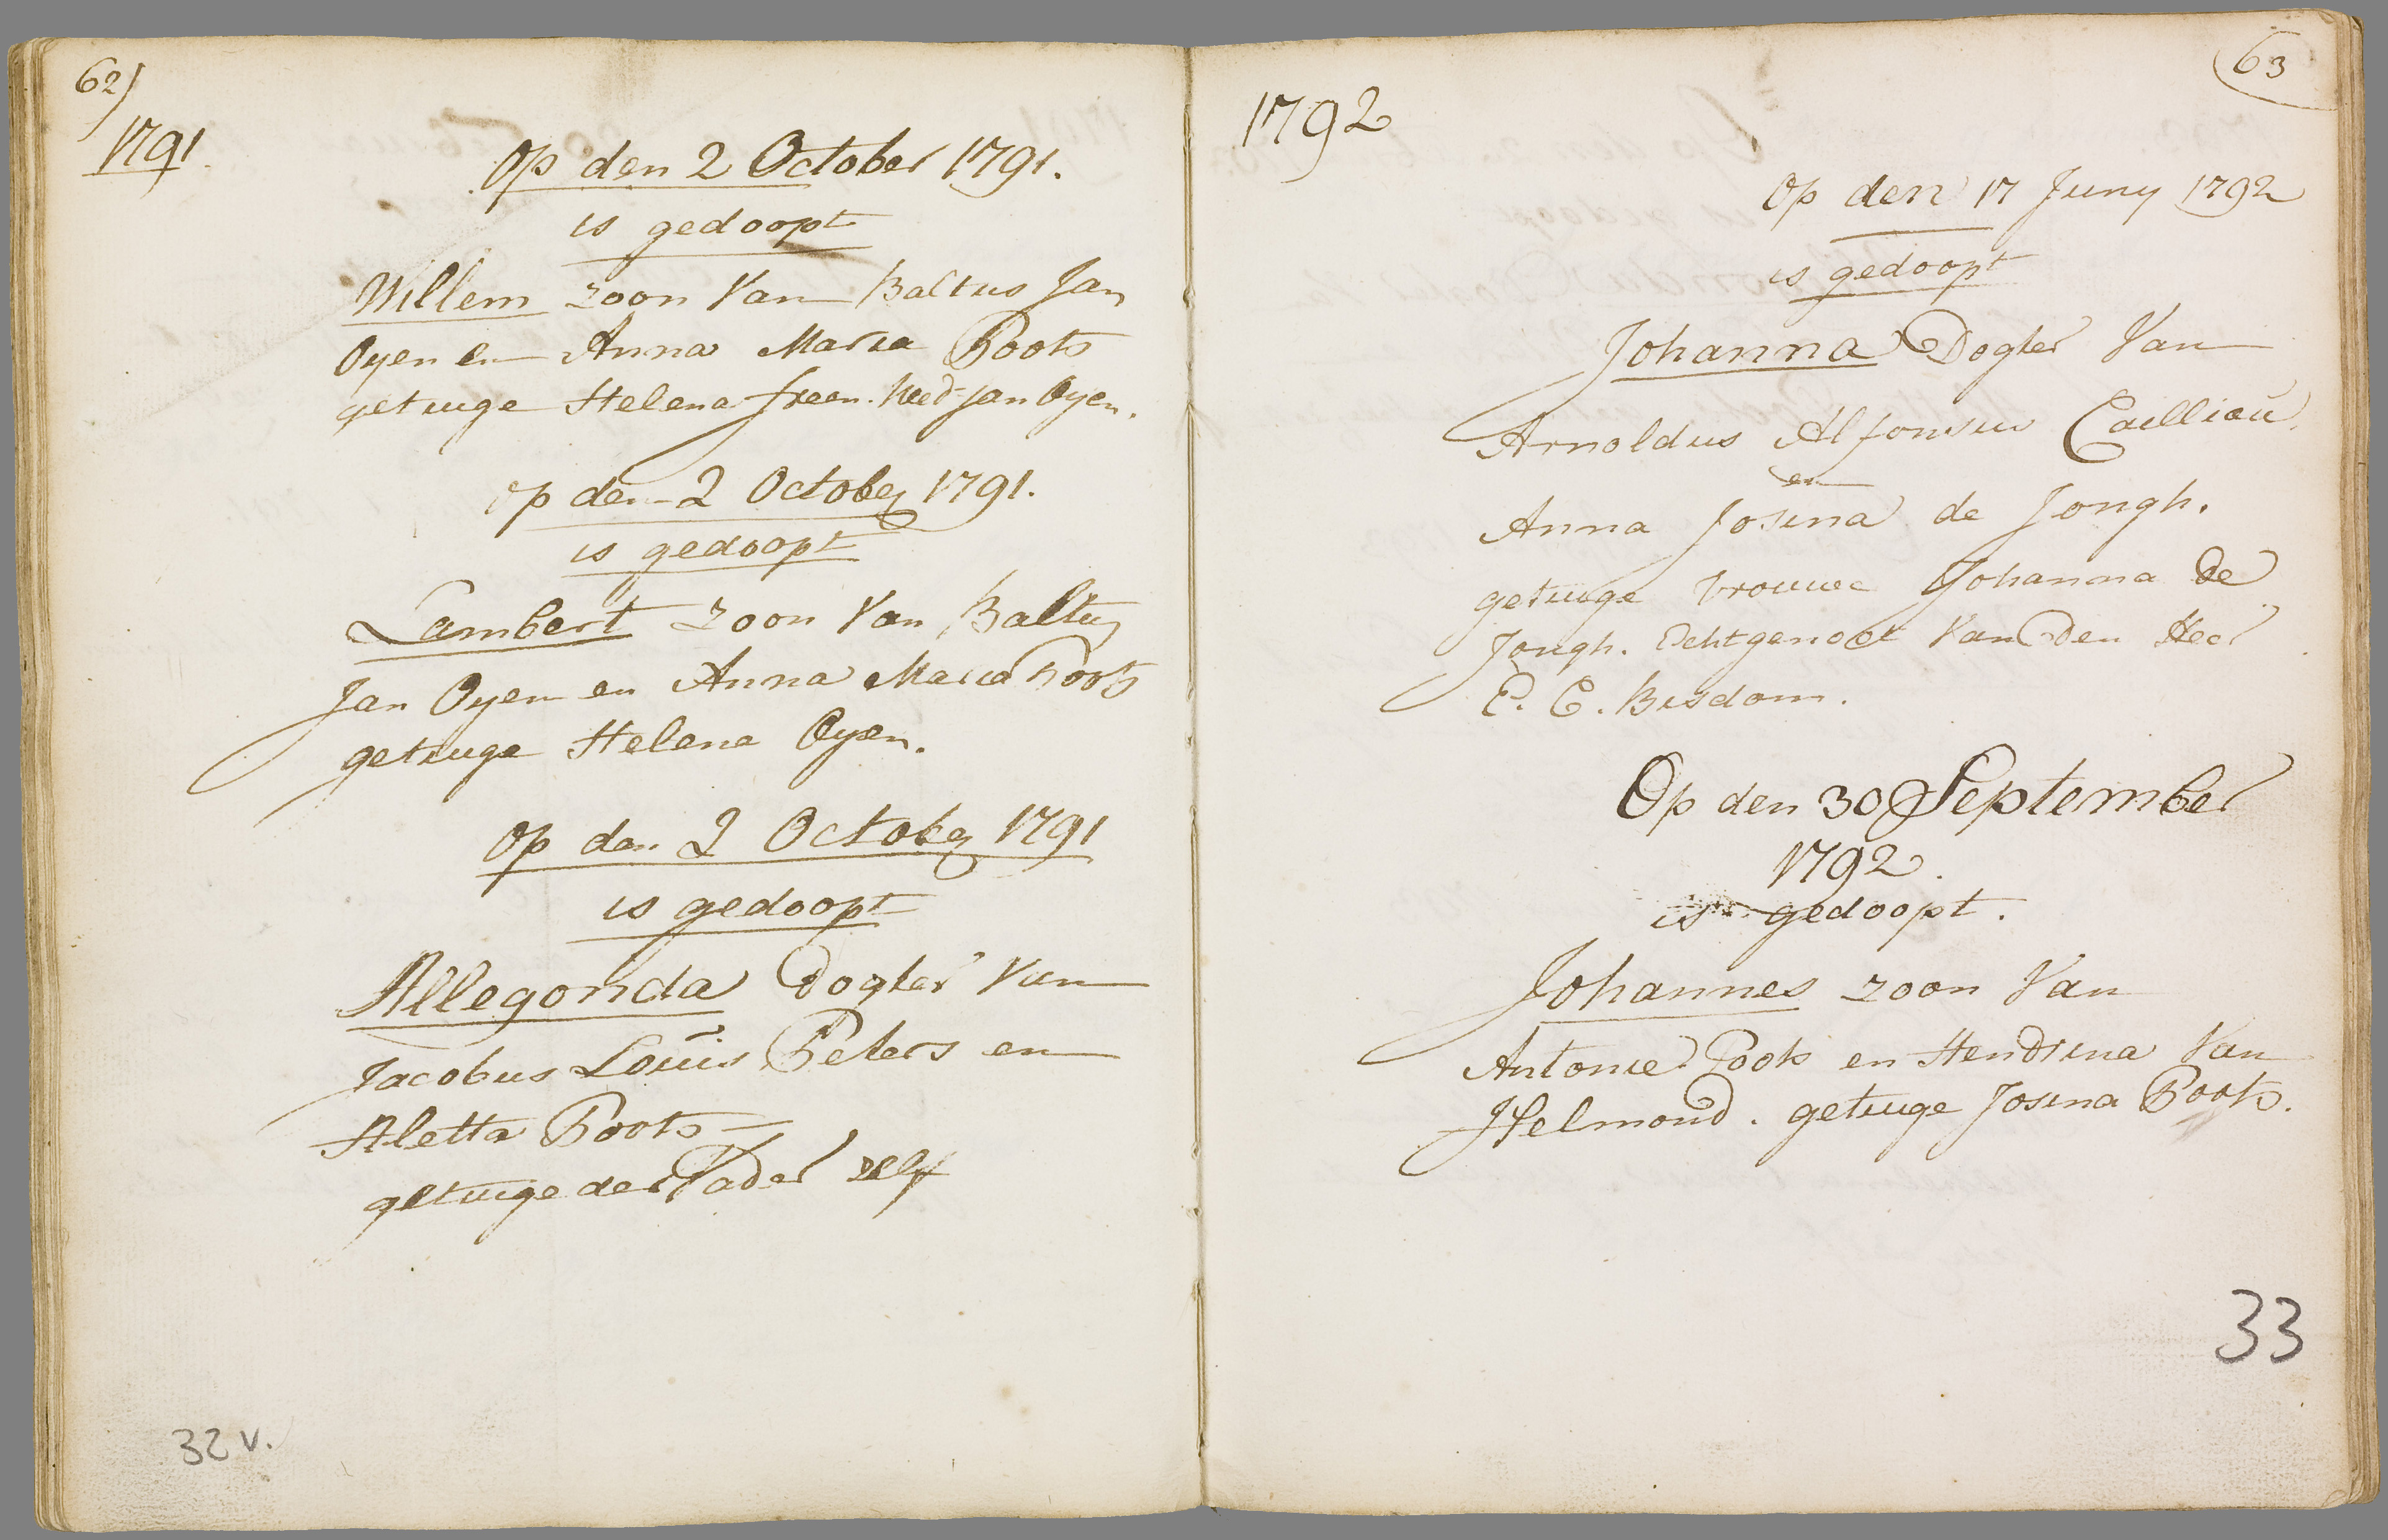 62)
1791.
Op den 2 October 1791.
is gedoopt
Willem zoon Van Baltus Jan
Oyen en Anna Maria Poots
getuige Helena freen. Wed Jan Oyen.
Op den 2 October 1791.
is gedoopt
Lambert zoon Van Baltus
Jan Oyen en Anna Maria Poots
getuige Helena Oyen.
Op den 2 October 1791
is gedoopt
Allegonda Dogter Van
Jacobus Louis Peters en
Aletta Poots
getuige der Vader zelf
32 v.
63
1792
Op den 17 Juny 1792
is gedoopt
Johanna Dogter Van
Arnoldus Alfonsus Cailliau
en
Anna Josina de Jongh.
getuige Vrouwe Johanna De
Jongh. Echtgenoot Van Den Heer
P. C. Bisdom.
Op den 30 September
1792.
is gedoopt.
Johannes zoon Van
Antonie Poots en Hendrina Van
Helmond. getuige Josina Poots.
33